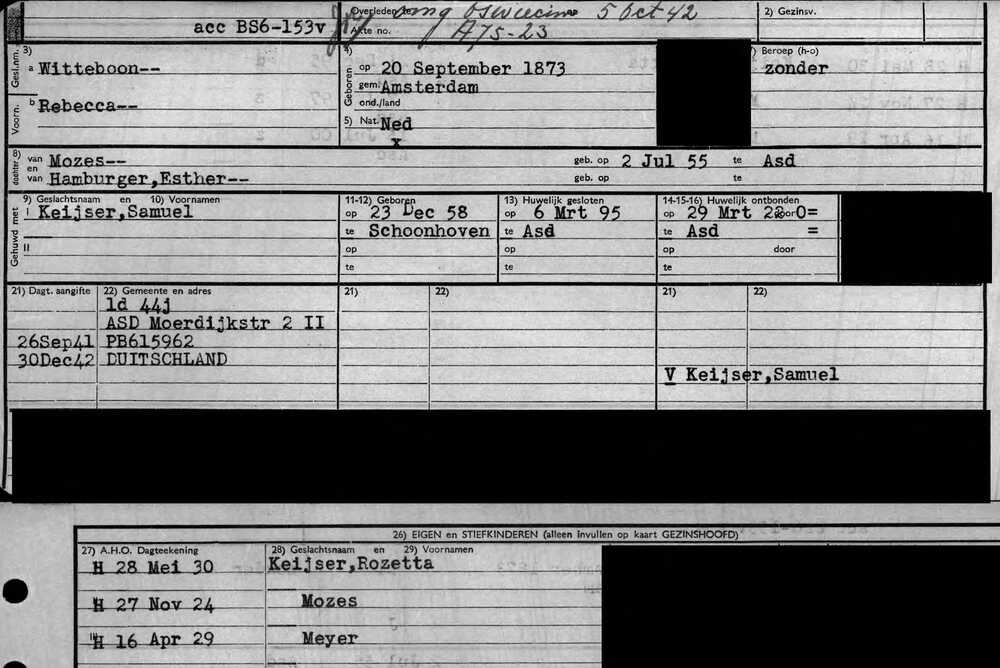 Overleden te omg Oswiecim 5 Oct 42
2) Gezinsv.
acc BS6-153v
Akte no. A75-23
3) Gesl.nm. a Witteboon--
4) Geboren op 20 September 1873
Beroep (h-o)
zonder
gem. Amsterdam
Voorn. b Rebecca--
ond./land
5) Nat. Ned
x
8) dochter van Mozes-- geb. op 2 Jul 55 te Asd
en
van Hamburger,Esther-- geb. op te
Gehuwd met
9) Geslachtsnaam en 10) Voornamen
11-12) Geboren
13) Huwelijk gesloten
14-15-16) Huwelijk ontbonden
I Keijser,Samuel op 23 Dec 58 op 6 Mrt 95 op 29 Mrt door O=
te Schoonhoven te Asd te Asd =
II op op op door
te te te
21) Dagt. aangifte 22) Gemeente en adres 21) 22) 21) 22)
ld 44j
ASD Moerdijkstr 2 II
26Sep41 PB615962
30Dec42 DUITSCHLAND
V Keijser,Samuel
26) EIGEN en STIEFKINDEREN (alleen invullen op kaart GEZINSHOOFD)
27) A.H.O. Dagteekening 28) Geslachtsnaam en 29) Voornamen
H 28 Mei 30 Keijser,Rozetta
H 27 Nov 24 Mozes
H 16 Apr 29 Meyer